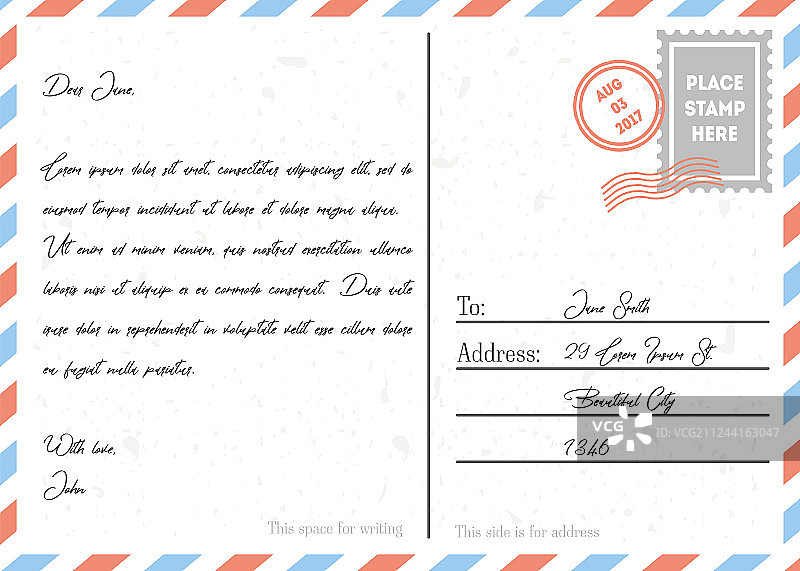 Dear Jane,
Lorem ipsum dolor sit amet, consectetur adipiscing elit, sed do
eiusmod tempor incididunt ut labore et dolore magna aliqua.
Ut enim ad minim veniam, quis nostrud exercitation ullamco
laboris nisi ut aliquip ex ea commodo consequat. Duis aute
irure dolor in reprehenderit in voluptate velit esse cillum dolore
eu fugiat nulla pariatur.
With love,
John
This space for writing
AUG
03
2017
PLACE
STAMP
HERE
To: Jane Smith
Address: 29 Lorem Ipsum St.
Beautiful City
1346
VCG
VCG211244163047
This side is for address